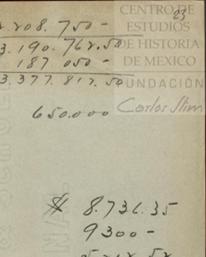 CENTRO DE
ESTUDIOS
DE HISTORIA
DE MEXICO
FUNDACIÓN
Carlos Slim
23
.208.750-
3.190.762.50
187.050-
3.377.812.50
650.000
$ 8.736.35
9300-